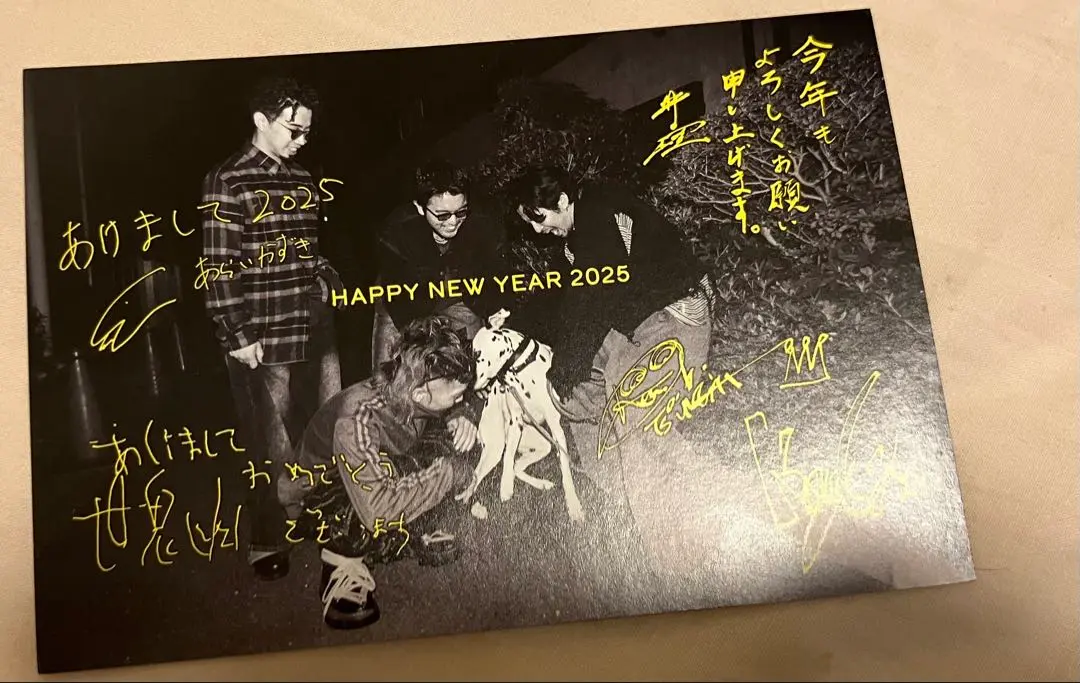 今年も
よろしくお願い
申し上げます。
井口理
あけまして2025
あらいかずき
HAPPY NEW YEAR 2025
あけまして
おめでとう
ございます